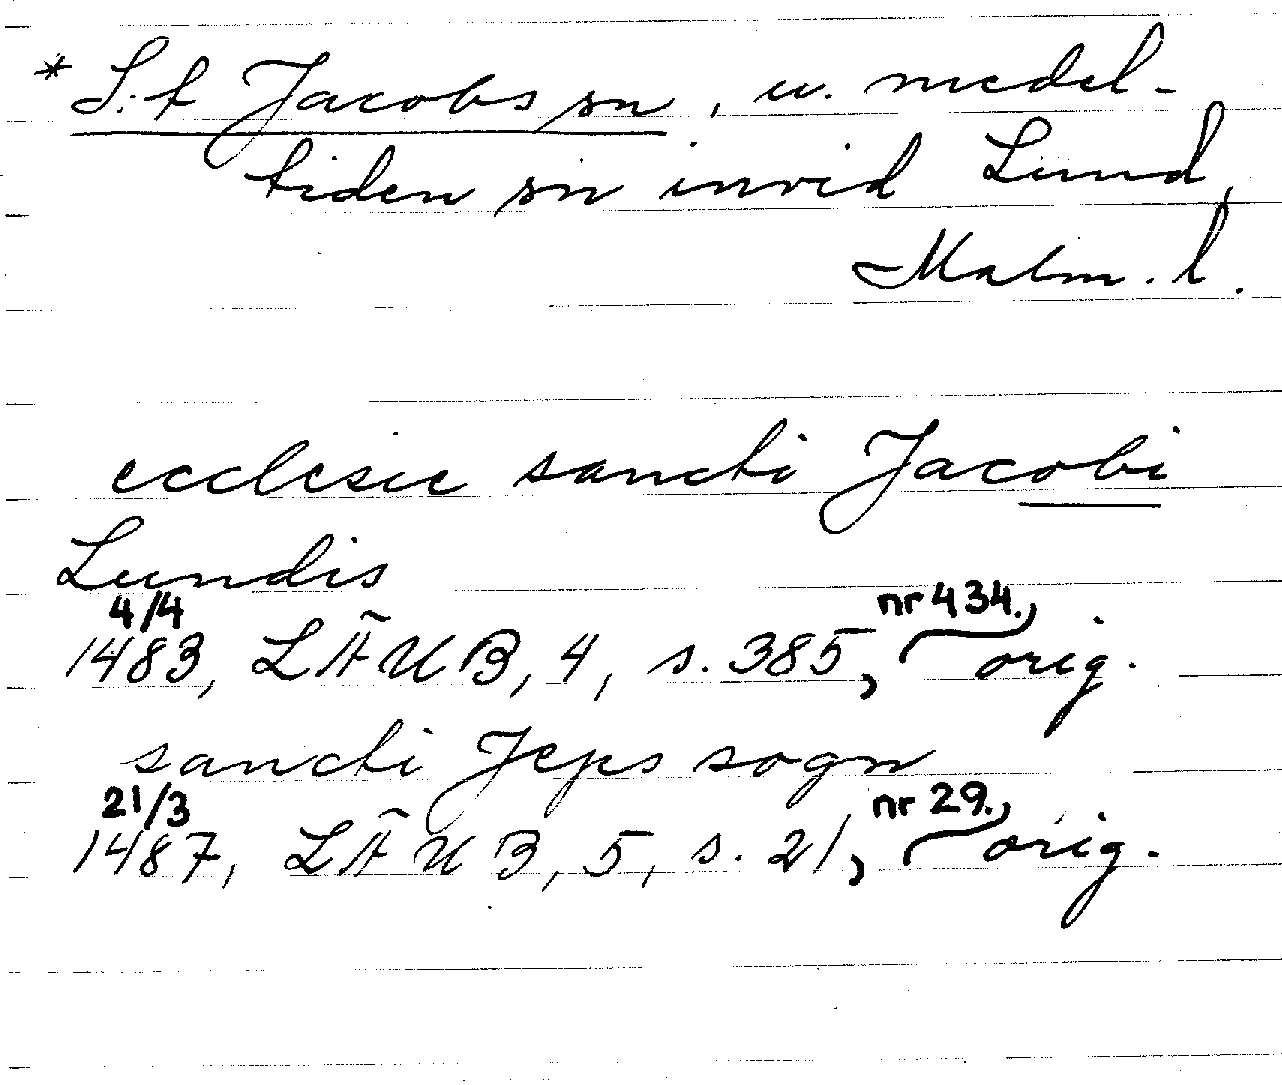 * S:t Jacobs sn, u. medel-
tiden sn invid Lund,
Malm. l.
ecclesie sancti Jacobi
Lundis
4/4 nr 434.,
1483, LÄUB, 4, s. 385, orig.
sancti Jeps sogn
21/3 nr 29.,
1487, LÄUB, 5, s. 21, orig.